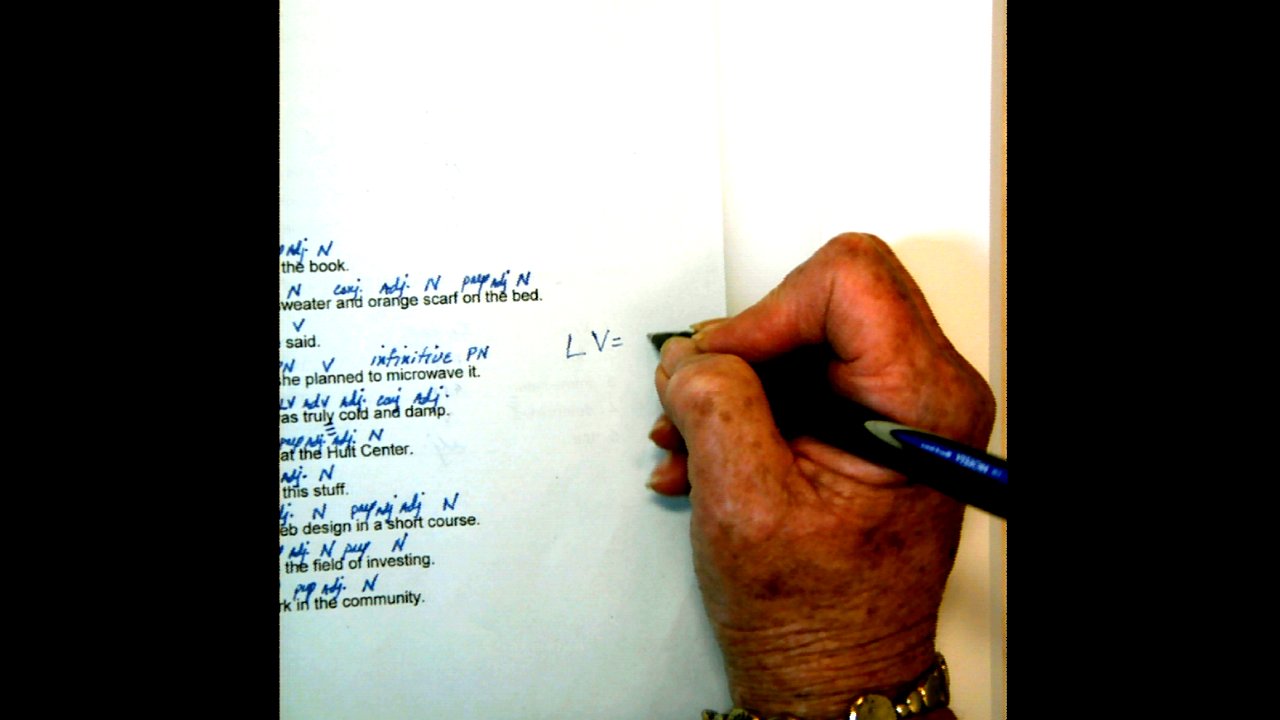 Adj. N
the book.
N conj. Adj. N prep Adj N
weater and orange scarf on the bed.
V
said.
LV=
PN V infinitive PN
she planned to microwave it.
LV Adv Adj. conj Adj.
as truly cold and damp.
prep Adj. Adj. N
at the Hult Center.
Adj. N
this stuff.
N prep Adj Adj N
eb design in a short course.
Adj. N prep N
the field of investing.
prep Adj. N
rk in the community.